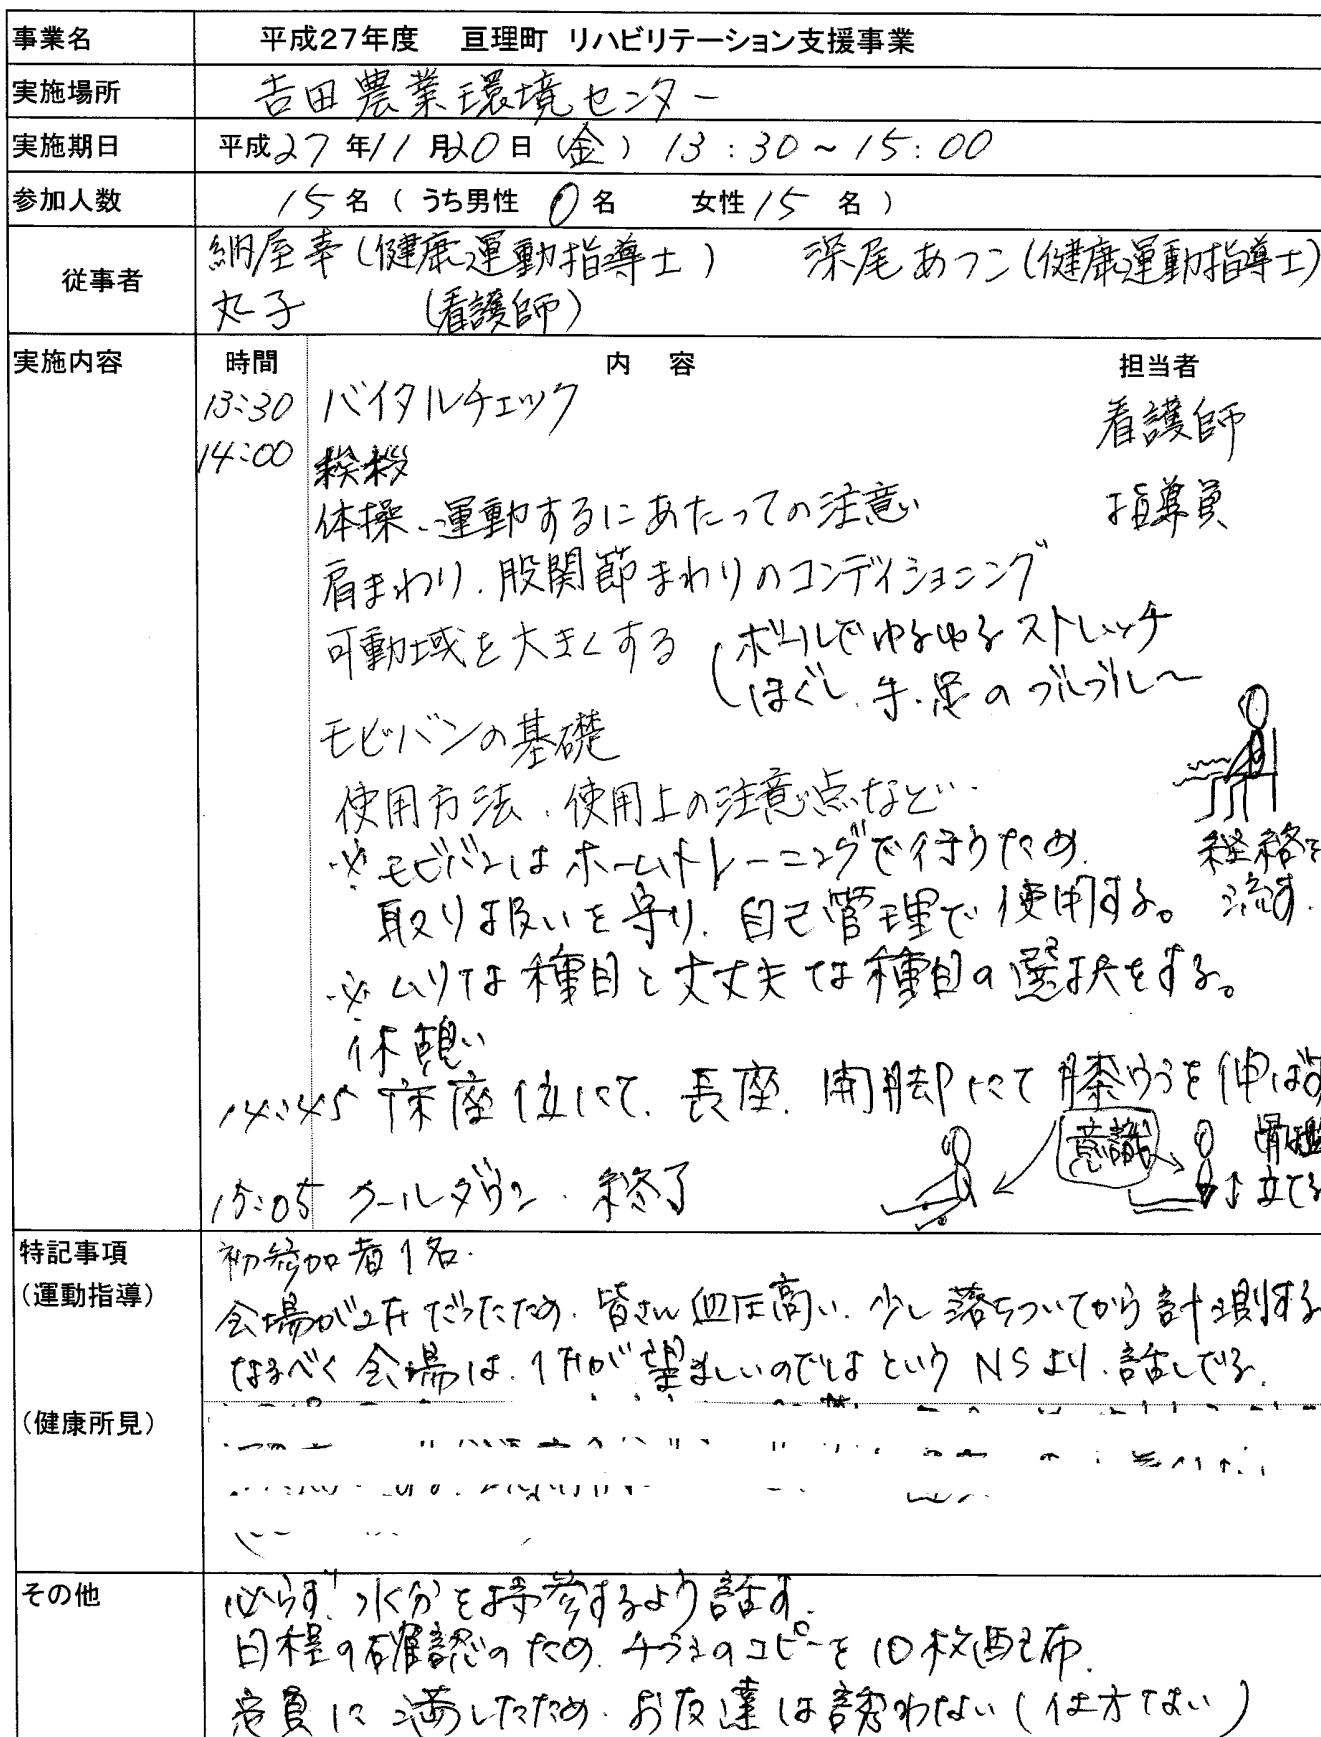 事業名 平成27年度 亘理町 リハビリテーション支援事業
実施場所 吉田農業環境センター
実施期日 平成27年11月20日(金) 13:30~15:00
参加人数 15名(うち男性 0名 女性15名)
従事者 納屋幸(健康運動指導士) 深尾あつこ(健康運動指導士)
丸子 (看護師)
実施内容 時間 内容 担当者
13:30 バイタルチェック 看護師
14:00 挨拶
体操、運動するにあたっての注意 指導員
肩まわり、股関節まわりのコンディショニング
可動域を大きくする (ボールでゆるゆるストレッチ
ほぐし、手・足のブルブル~
モビバンの基礎
使用方法、使用上の注意点など…
※モビバンはホームトレーニングで行うため、 経絡を
取り扱いを守り、自己管理で使用する。 流す.
※ムリな種目と丈丈夫な種目の選択をする。
休憩
14:45 床座位にて、長座、開脚にて膝うらを伸ばす
意識 骨盤
立てる
15:05 クールダウン、終了
特記事項 初参加者1名.
(運動指導) 会場が2Fだったため、皆さん血圧高い、少し落ちついてから計測する
なるべく会場は、1Fが望ましいのではというNSより、話しでる.
(健康所見)
その他 必らず、水分を持参するよう話す.
日程の確認のため、チラシのコピーを10枚配布.
定員に満したため、お友達は誘わない(仕方ない)